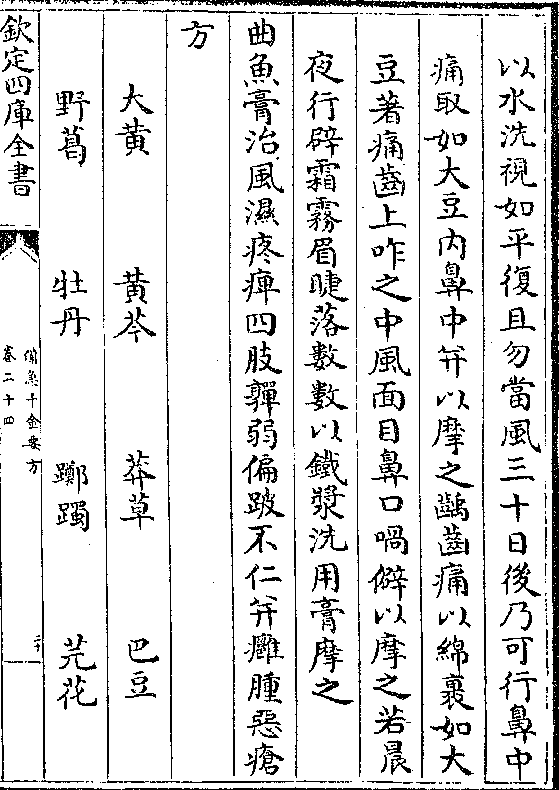 以水洗視如平復且勿當風三十日後乃可行鼻中
痛取如大豆內鼻中并以摩之齲齒痛以綿裹如大
豆著痛齒上咋之中風面目鼻口喎僻以摩之若晨
夜行辟霜霧眉睫落數數以鐵漿洗用膏摩之
曲魚膏治風濕疼痺四肢軃弱偏跛不仁并癰腫惡瘡
方
大黄 黄芩 莽草 巴豆
野葛 牡丹 躑躅 芫花
欽定四庫全書
備急千金要方
卷二十四